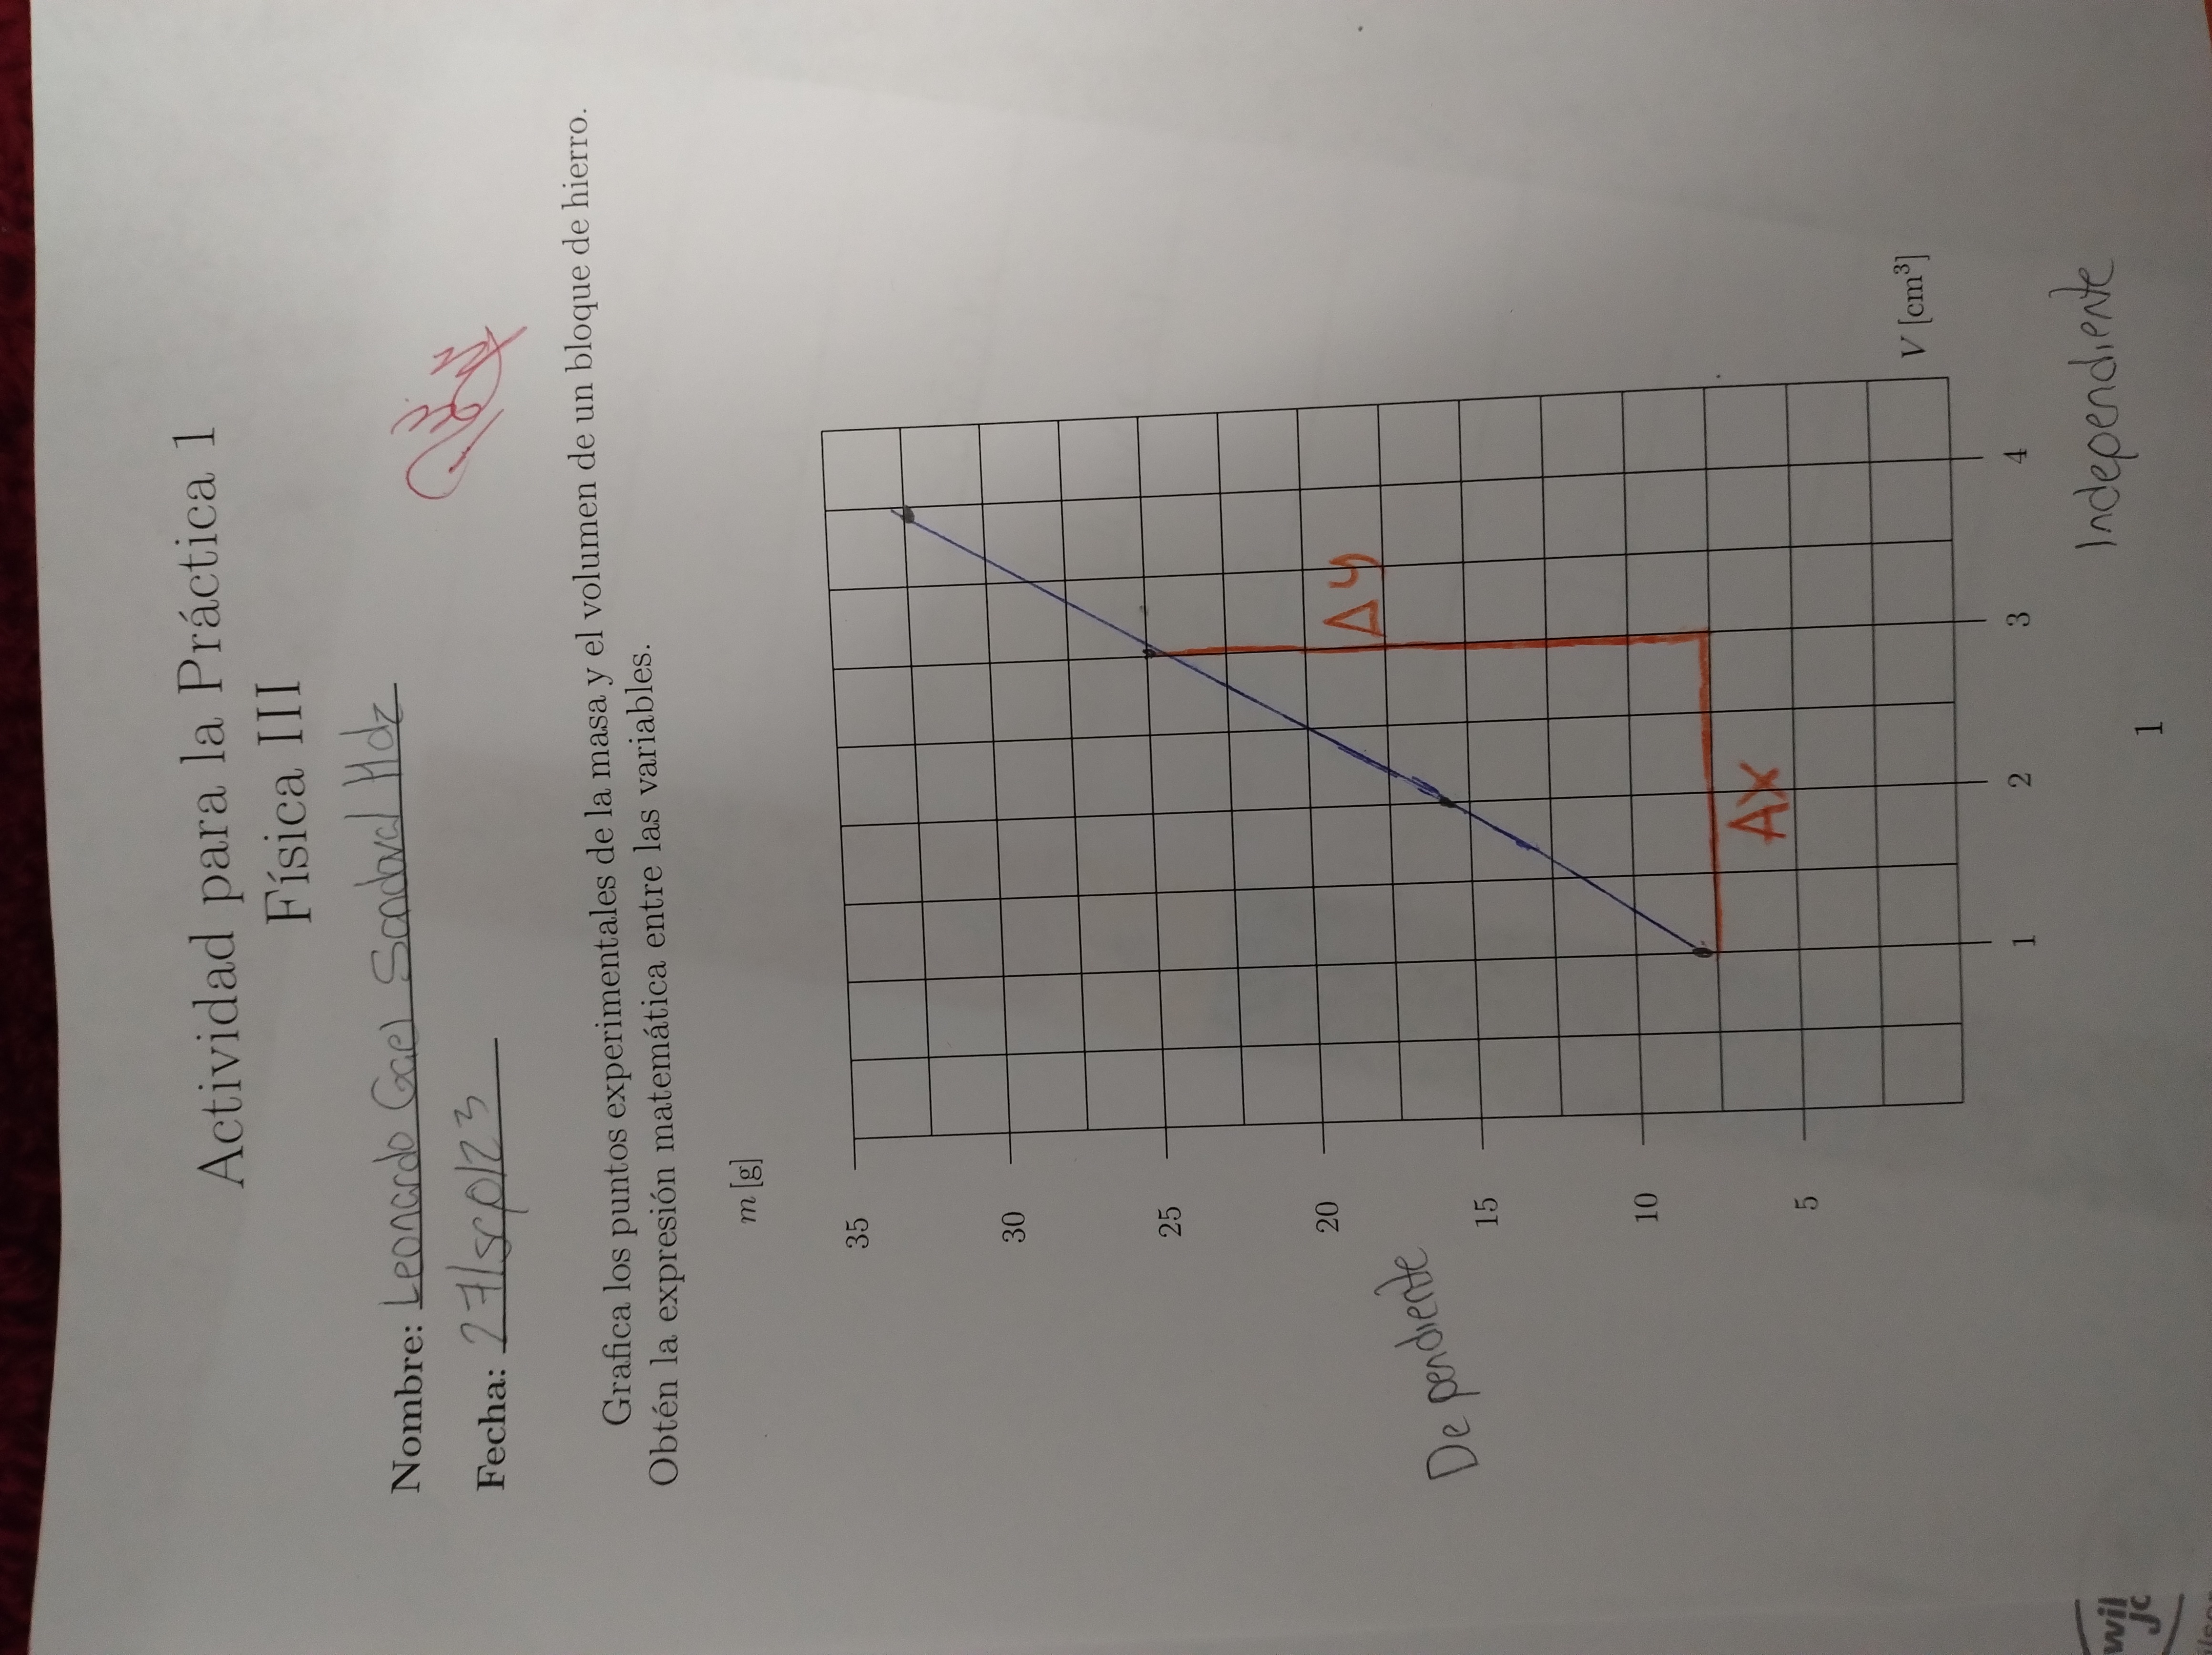 Actividad para la Práctica 1
Física III
Nombre: Leonardo Gael Sandoval Hdz
Fecha: 27/sep/23
Grafica los puntos experimentales de la masa y el volumen de un bloque de hierro.
Obtén la expresión matemática entre las variables.
m [g]
35
30
25
20
15
10
5
Dependiente
Δy
Δx
V [cm³]
1 2 3 4
Independiente
1
wil
JC